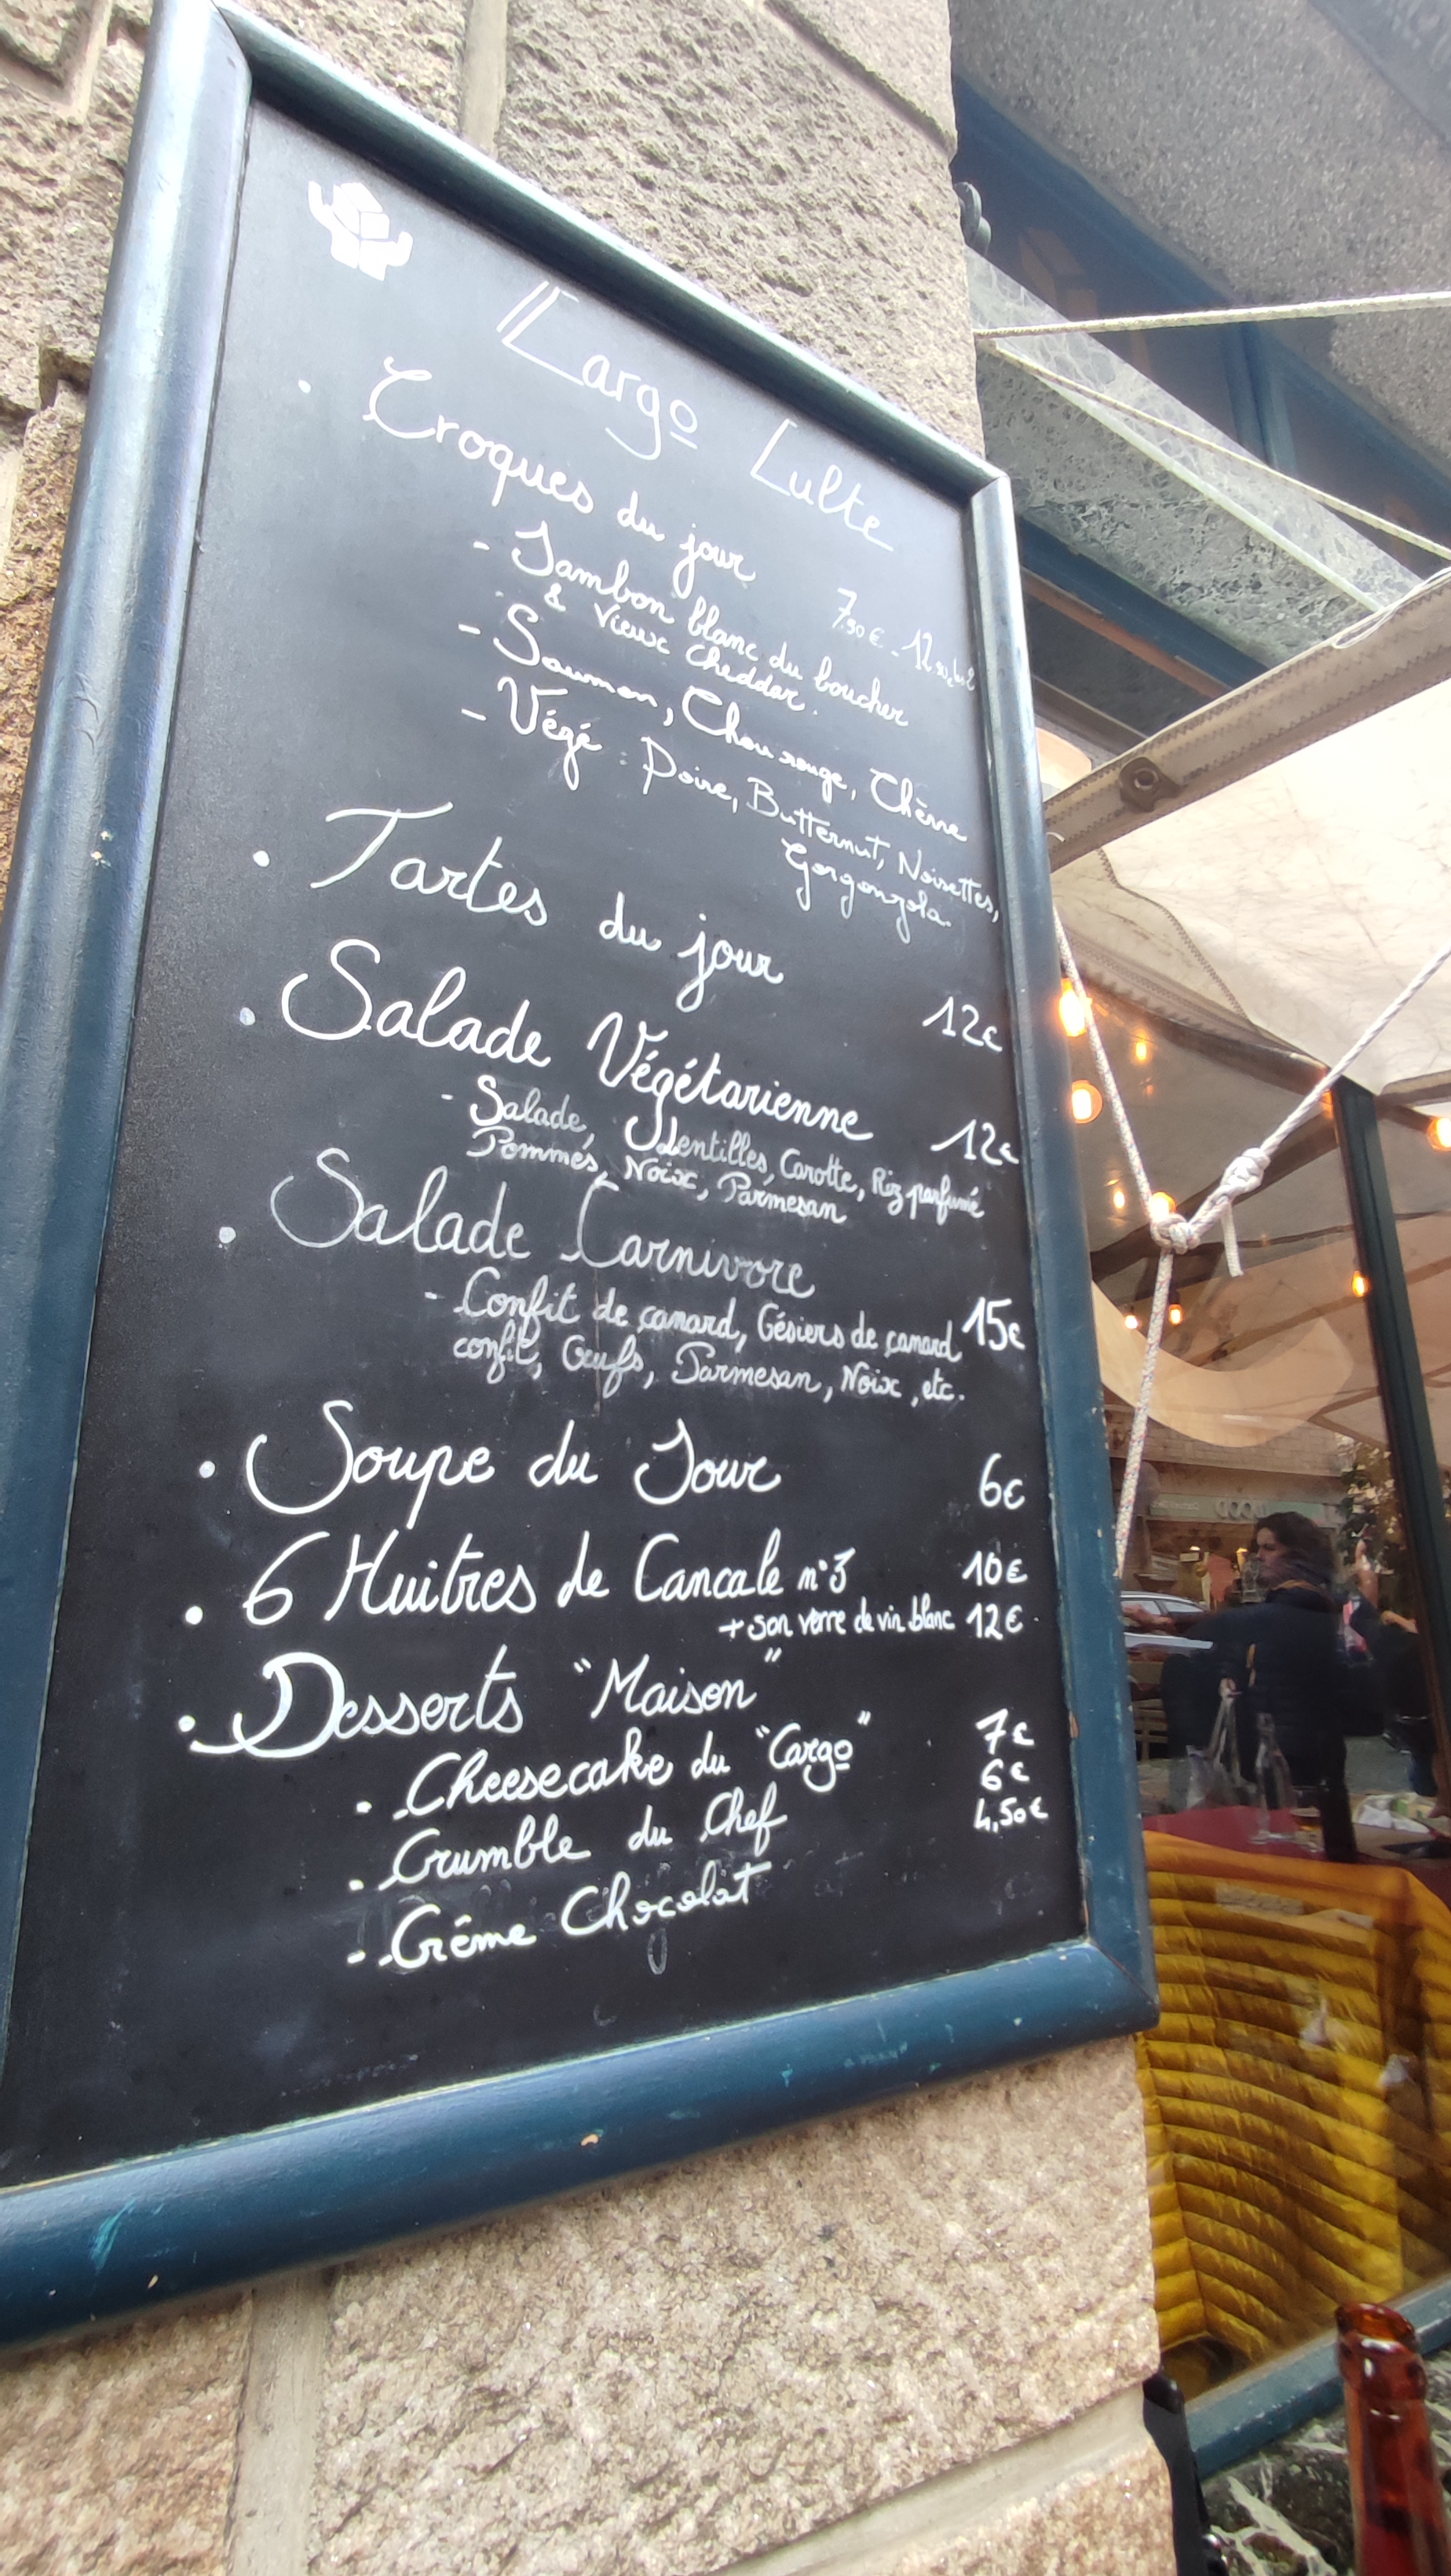 Cargo Culte
• Croques du jour 7.90€ - 12.90€ les 2
- Jambon blanc du boucher
& Vieux Cheddar.
- Saumon, Chou rouge, Chèvre
- Végé : Poire, Butternut, Noisettes,
Gorgonzola.
• Tartes du jour 12€
• Salade Végétarienne 12€
- Salade, Lentilles, Carotte, Riz parfumé
Pommes, Noix, Parmesan
• Salade Carnivore 15€
- Confit de canard, Gésiers de canard
confit, Oeufs, Parmesan, Noix, etc.
• Soupe du Jour 6€
• 6 Huitres de Cancale n°3 10€
+ son verre de vin blanc 12€
• Desserts "Maison"
- Cheesecake du "Cargo" 7€
- Crumble du Chef 6€
- Crème Chocolat 4,50€